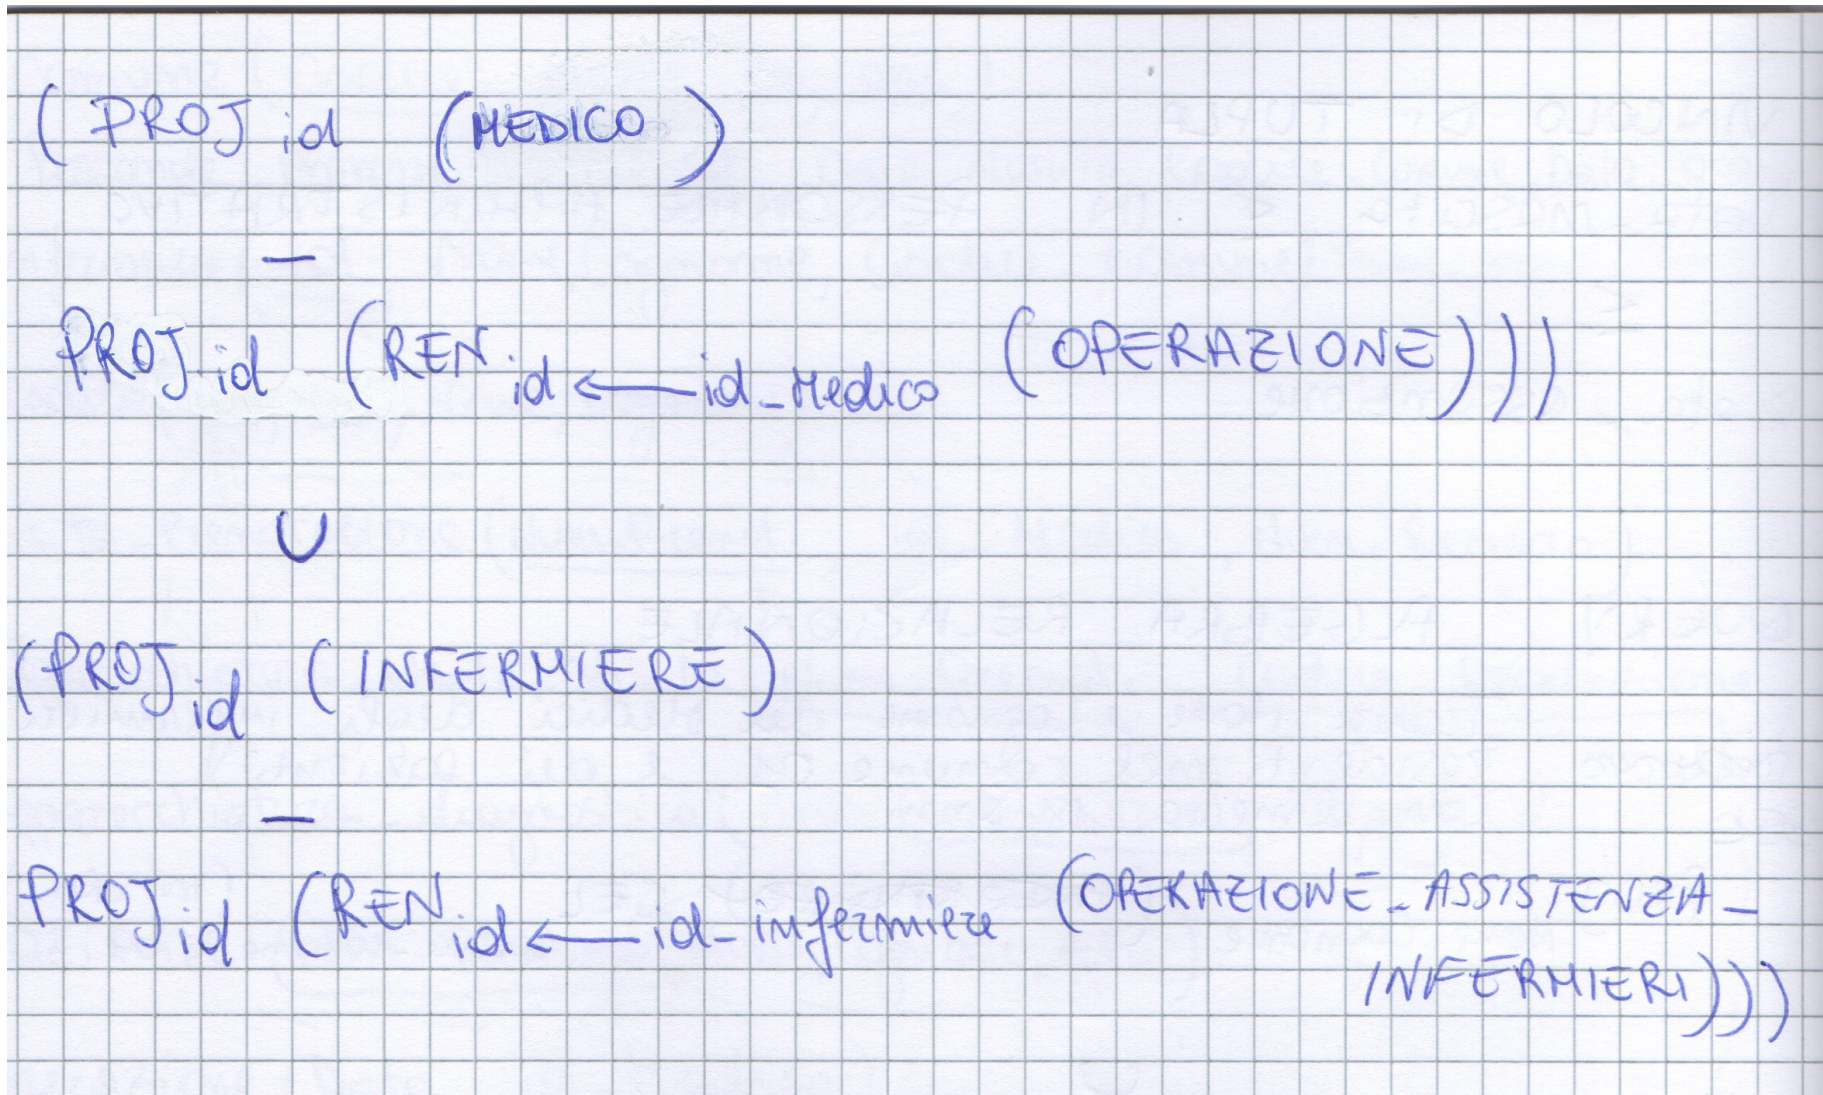 (PROJ id (MEDICO)
—
PROJ id (REN id ← id_Medico (OPERAZIONE)))
∪
(PROJ id (INFERMIERE)
—
PROJ id (REN id ← id_infermiere (OPERAZIONE_ASSISTENZA_
INFERMIERI)))